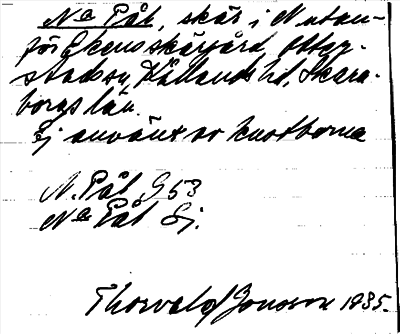 Na Pål, skär i N utan-
för Ekens skärgård, Otter-
stads sn, Kållands hd, Skara-
borgs län.
Ej använt av kustborna
N. Pål G 53
Na Pål Ej.
Thorvald Jonsson 1935.